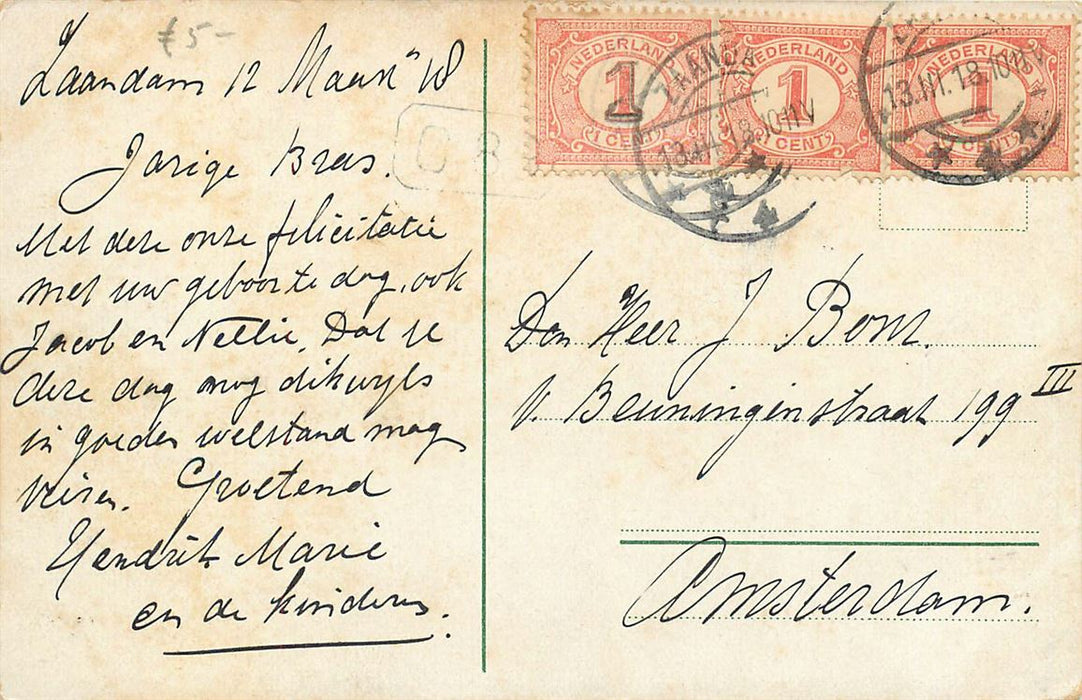 £5-
Zaandam 12 Maart '18
Jarige Bras.
Met deze onze felicitatie
met uw geboorte dag, ook
Jacob en Nellie, Dat je
deze dag nog dikwyls
in goeden welstand mag
Groetend
Hendrik Marie
en de kinderen.
NEDERLAND
1
1 CENT
NEDERLAND
1
1 CENT
NEDERLAND
1
1 CENT
ZAANDA
13.III.18.10-11V
13.III.18.10-11V
Den Heer J Bom.
v. Beuningenstraat 199 III
Amsterdam.